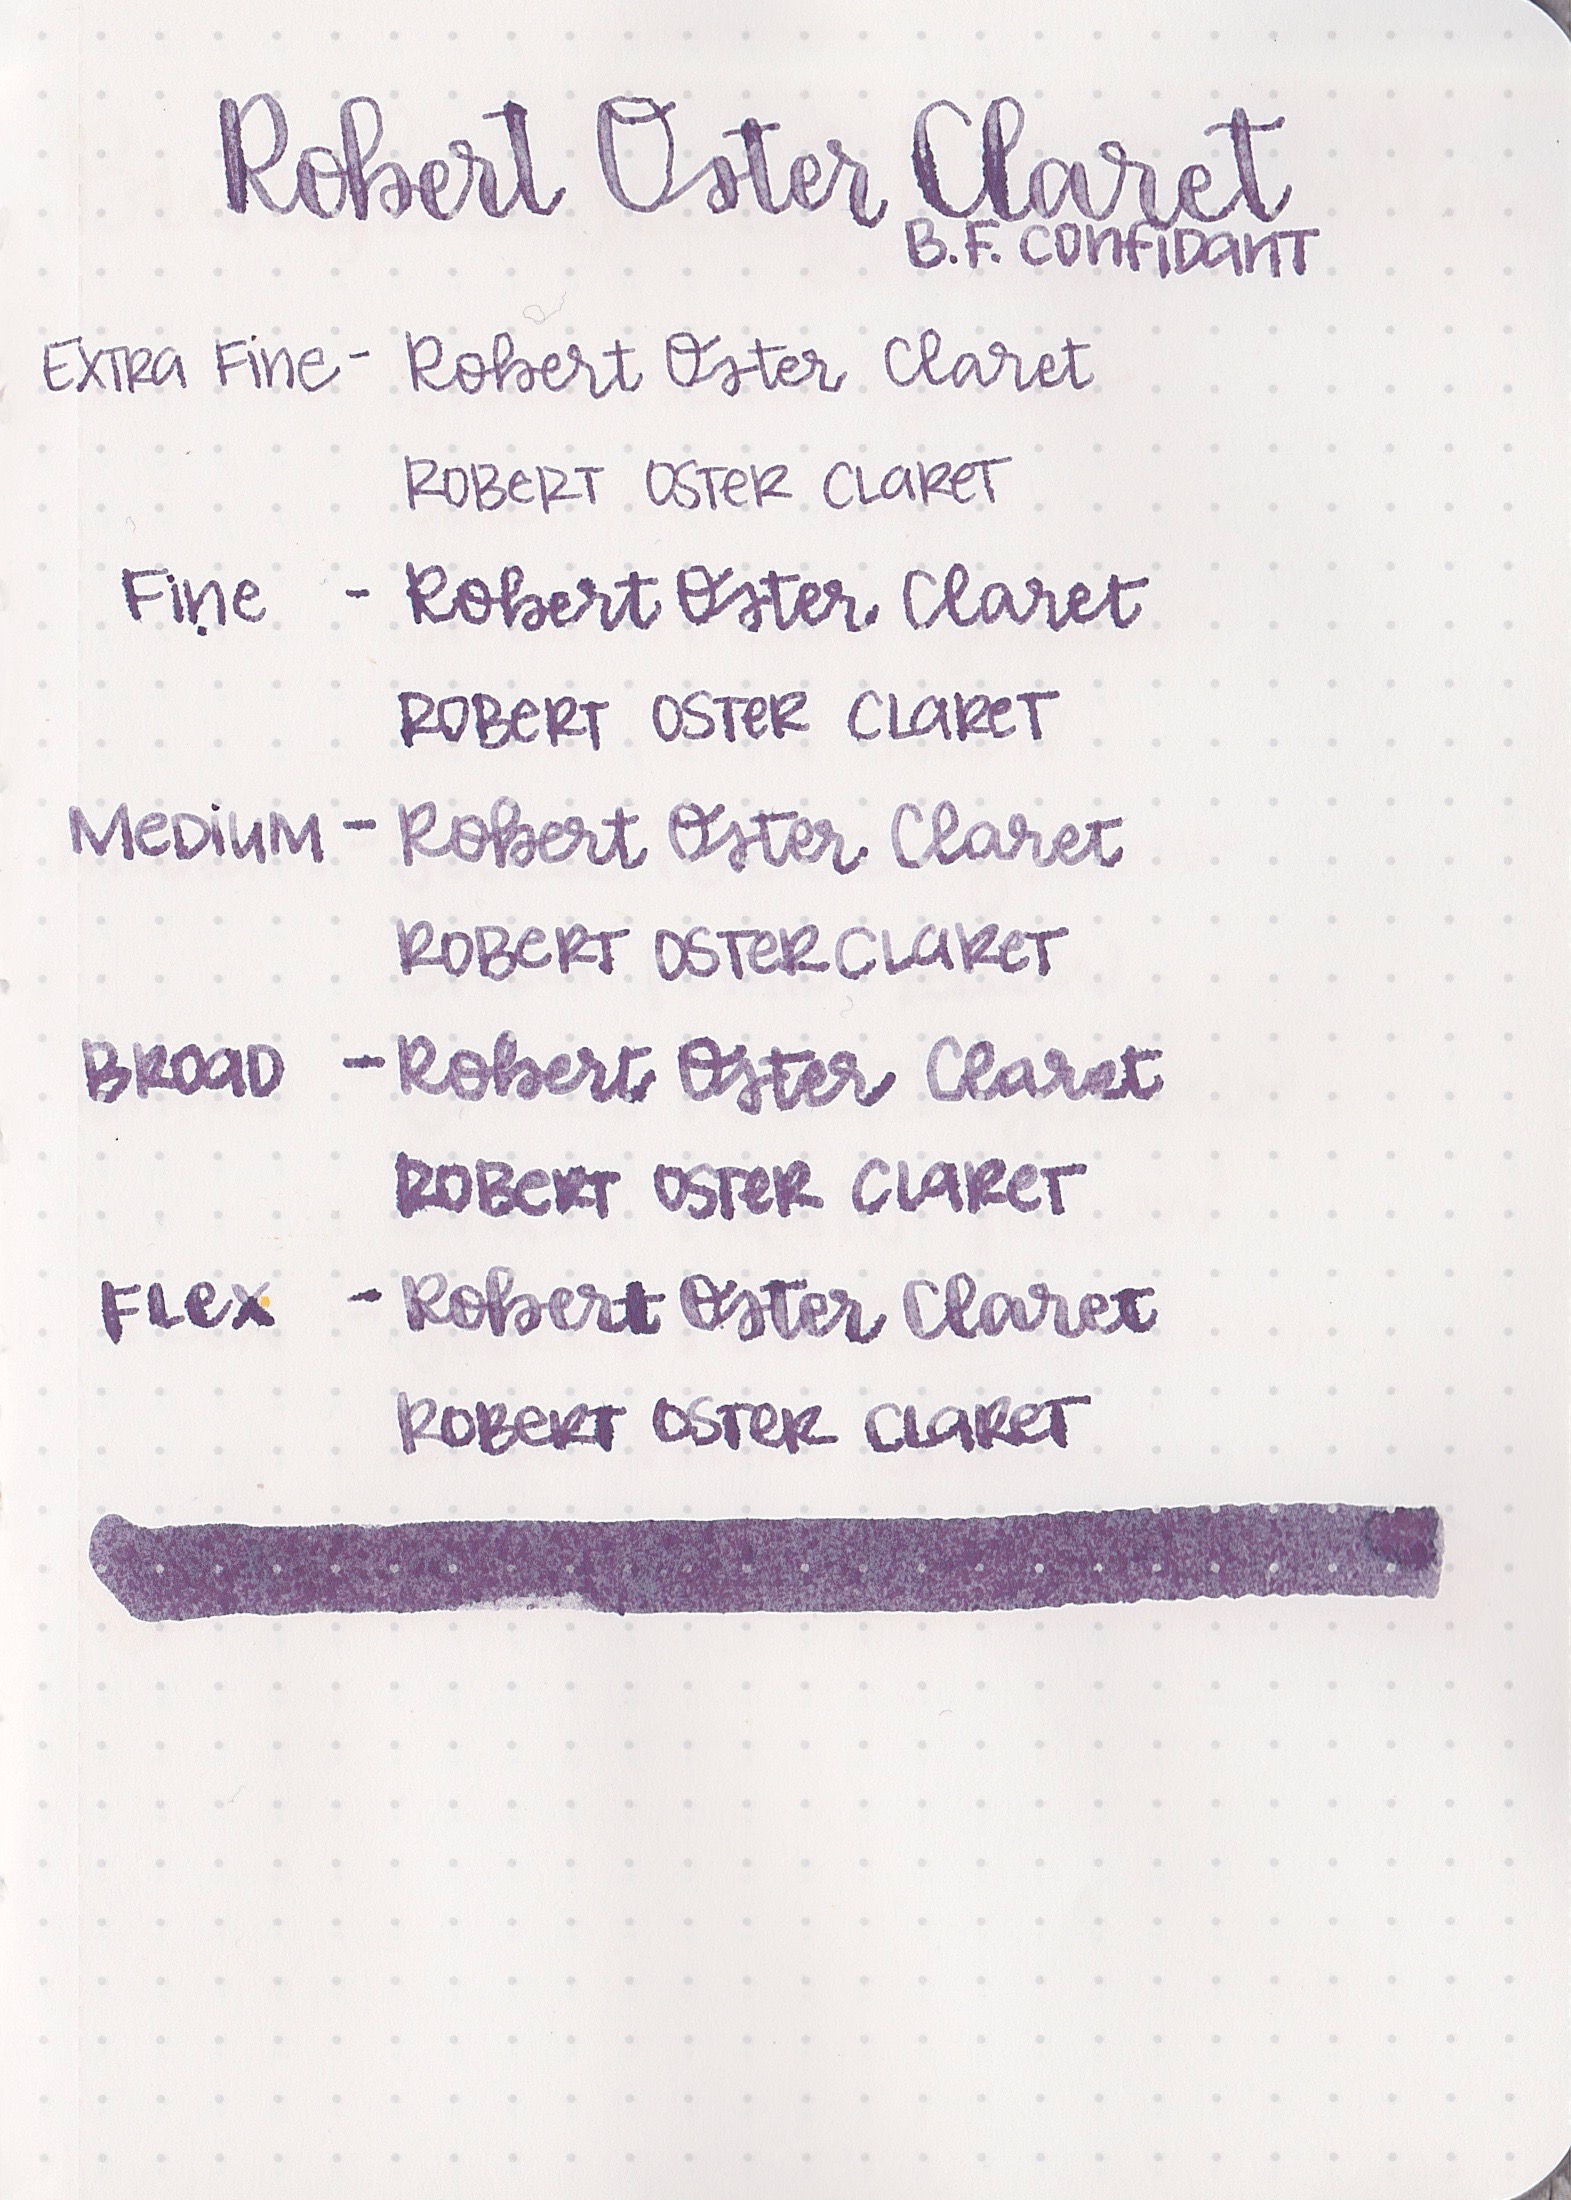 Robert Oster Claret
B.F. Confidant
Extra Fine - Robert Oster Claret
Robert Oster Claret
Fine - Robert Oster Claret
Robert Oster Claret
Medium - Robert Oster Claret
Robert Oster Claret
Broad - Robert Oster Claret
Robert Oster Claret
Flex - Robert Oster Claret
Robert Oster Claret